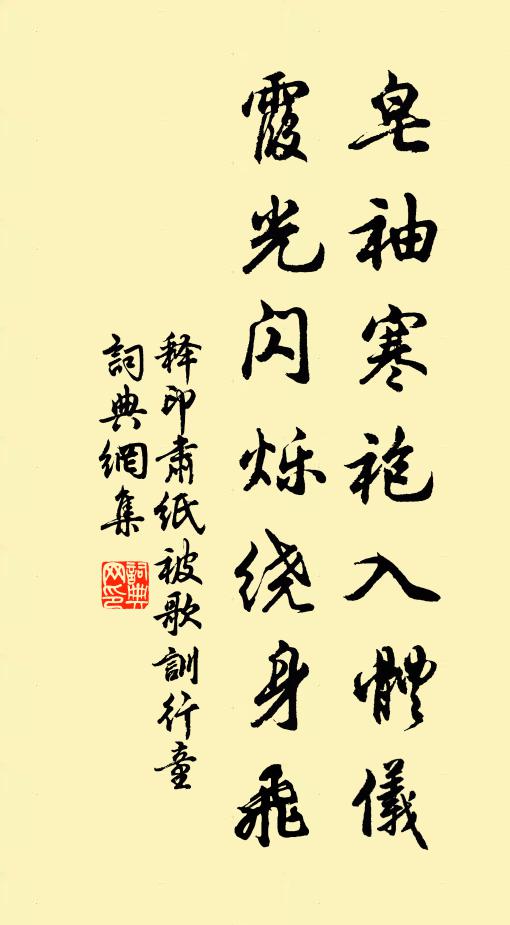 皂袖寒袍入體儀
霞光闪烁绕身飛
释印肃纸被歌訓行童
詞典網集
詞典网印